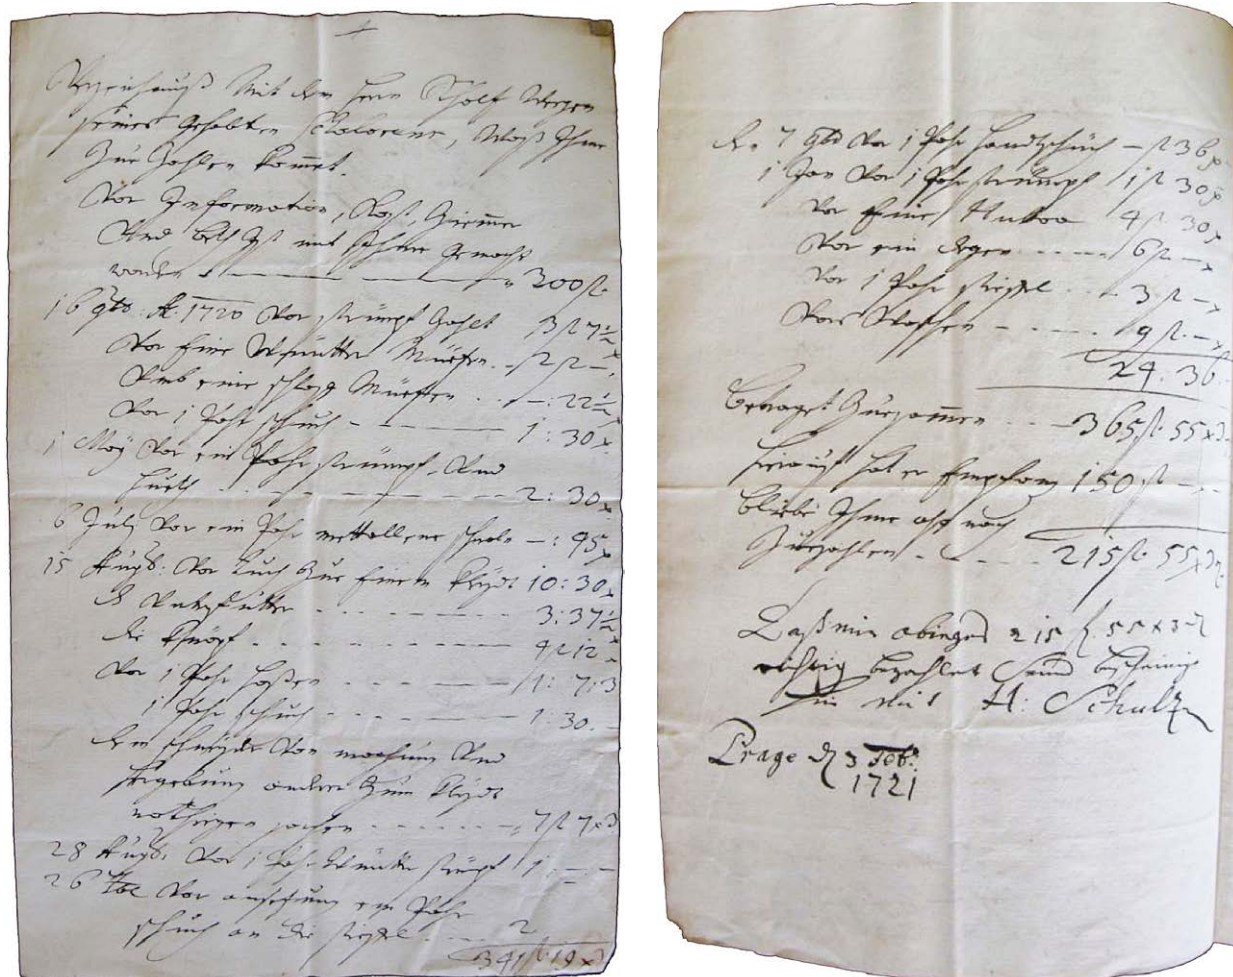 4
Verzeichnuß Mit dem Herrn Scholtz Wegen
seines gehabten Scholarens, Waß Ihme
Zue Zahlen kommet.
Vor Information, Kost, Zimmer
Und mit
worden 300 fl.
16 9br: A: 1720 Vor strümpf Zahlt 3 fl 7½ x
Vor Eine Mützen 2 fl —
Umb eine schlaff Mützen — : 22½ x
Vor 1 Pahr schuch 1 : 30 x
1 Maÿ Vor ein Pahr strümpf Und
Hueth 2 : 30 x
6 Julj Vor ein Pahr mettallene schnaln — : 45 x
15 Augs: Vor Tuch Zue Einem Kleydt 10 : 30 x
d Unterfutter 3 : 37½ x
die Knöpf 4 : 12
Vor 1 Pahr Hoßen 1 : 7 : 3
1 Pahr schuch 1 : 30
dem schneyder Von machung Und
andern Zum Kleydt
nothigen sachen 7 fl 7 x 3
28 Augs: Vor 1 Pahr strümpf 1 : —
26 Vor ein Pahr
schuch an die stieffel 2
341 fl 19 x 3
d. 7 9br Vor 1 Pahr Handtschuch — fl 36 x
1 Jan Vor 1 Pahr strümpf 1 fl 30 x
Vor Eine 4 fl 30 x
Vor ein degen 6 fl — x
Vor 1 Pahr stieffel 3 fl — x
Vor Waschen 9 fl. — x
24. 36
Betraget Zuesammen 365 fl. 55 x 3
hierauf hat er Empfang 150 fl —
bliebe Ihme also noch
Zuezahlen 215 fl. 55 x 3
Daß mir obiges 215 f. 55 x 3
richtig bezahlet Seind bescheinige
hie mit H: Schultz
Prage d 3 Feb:
1721